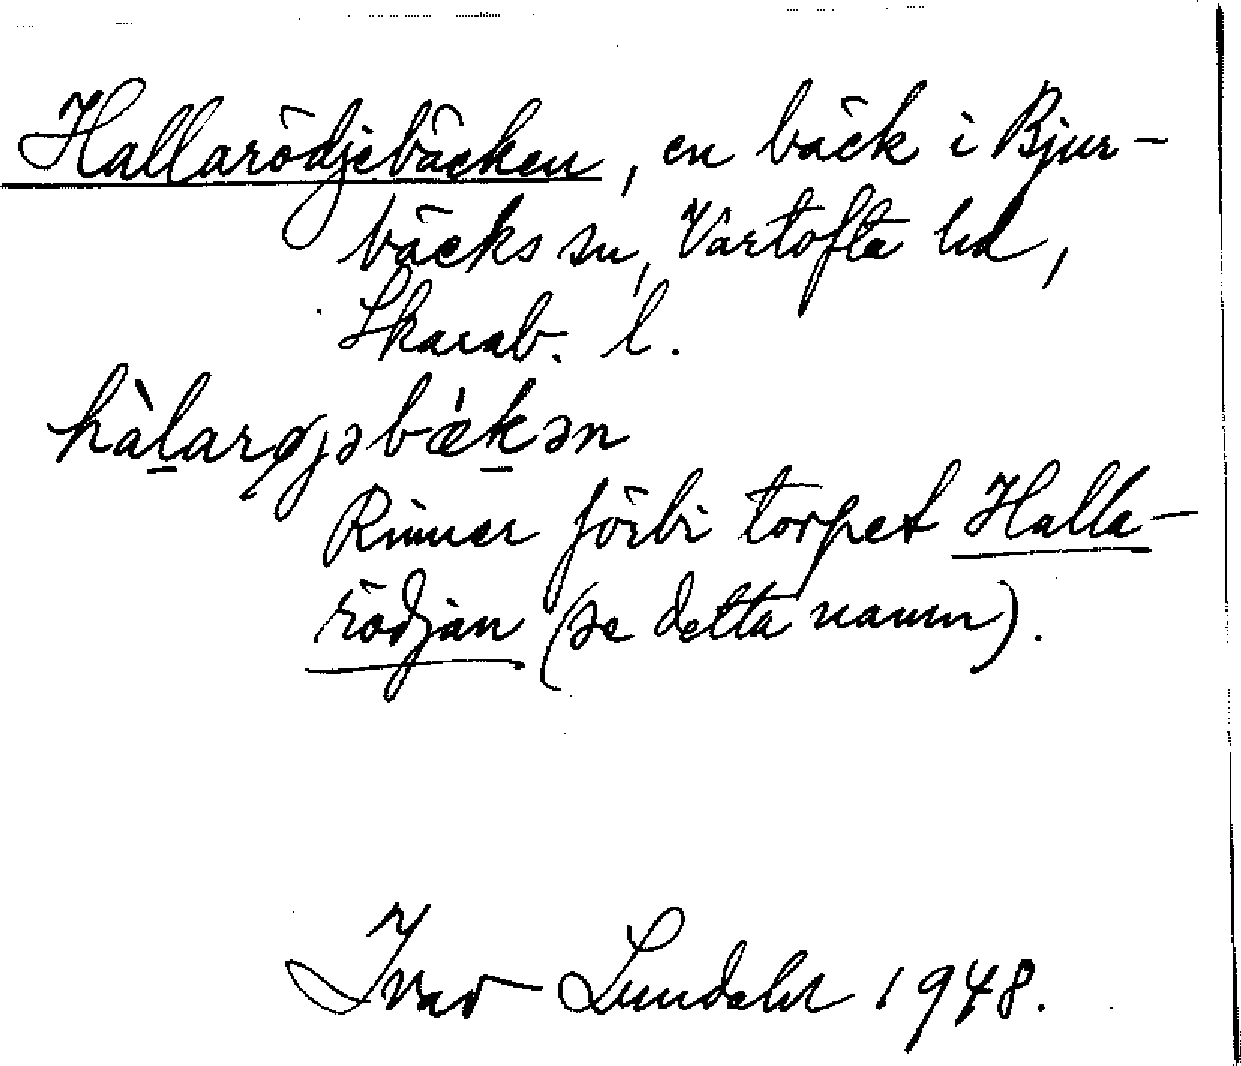 Hallarödjebäcken, en bäck i Bjur-
bäcks sn, Vartofta hd,
Skarab. l.
hàl̠arøjəbæ̍k̠ən
Rinner förbi torpet Halla-
rödjan (se detta namn).
Ivar Lundahl 1948.